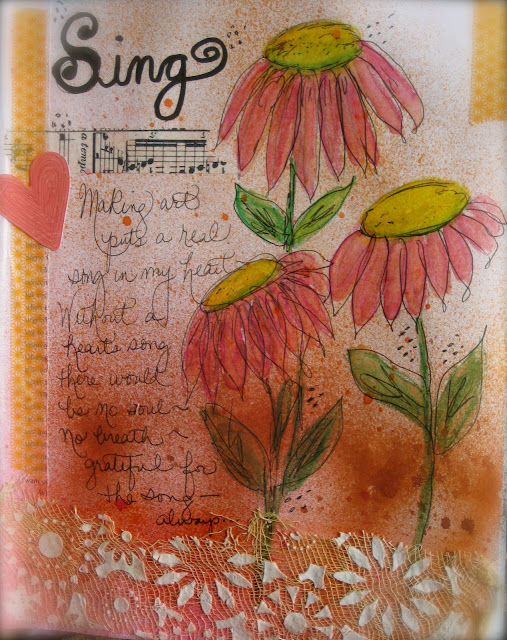 Sing
a temp
Making art
puts a real
song in my heart
Without a
hearts song
there would
be no soul~
No breath~
grateful for
the song—
always